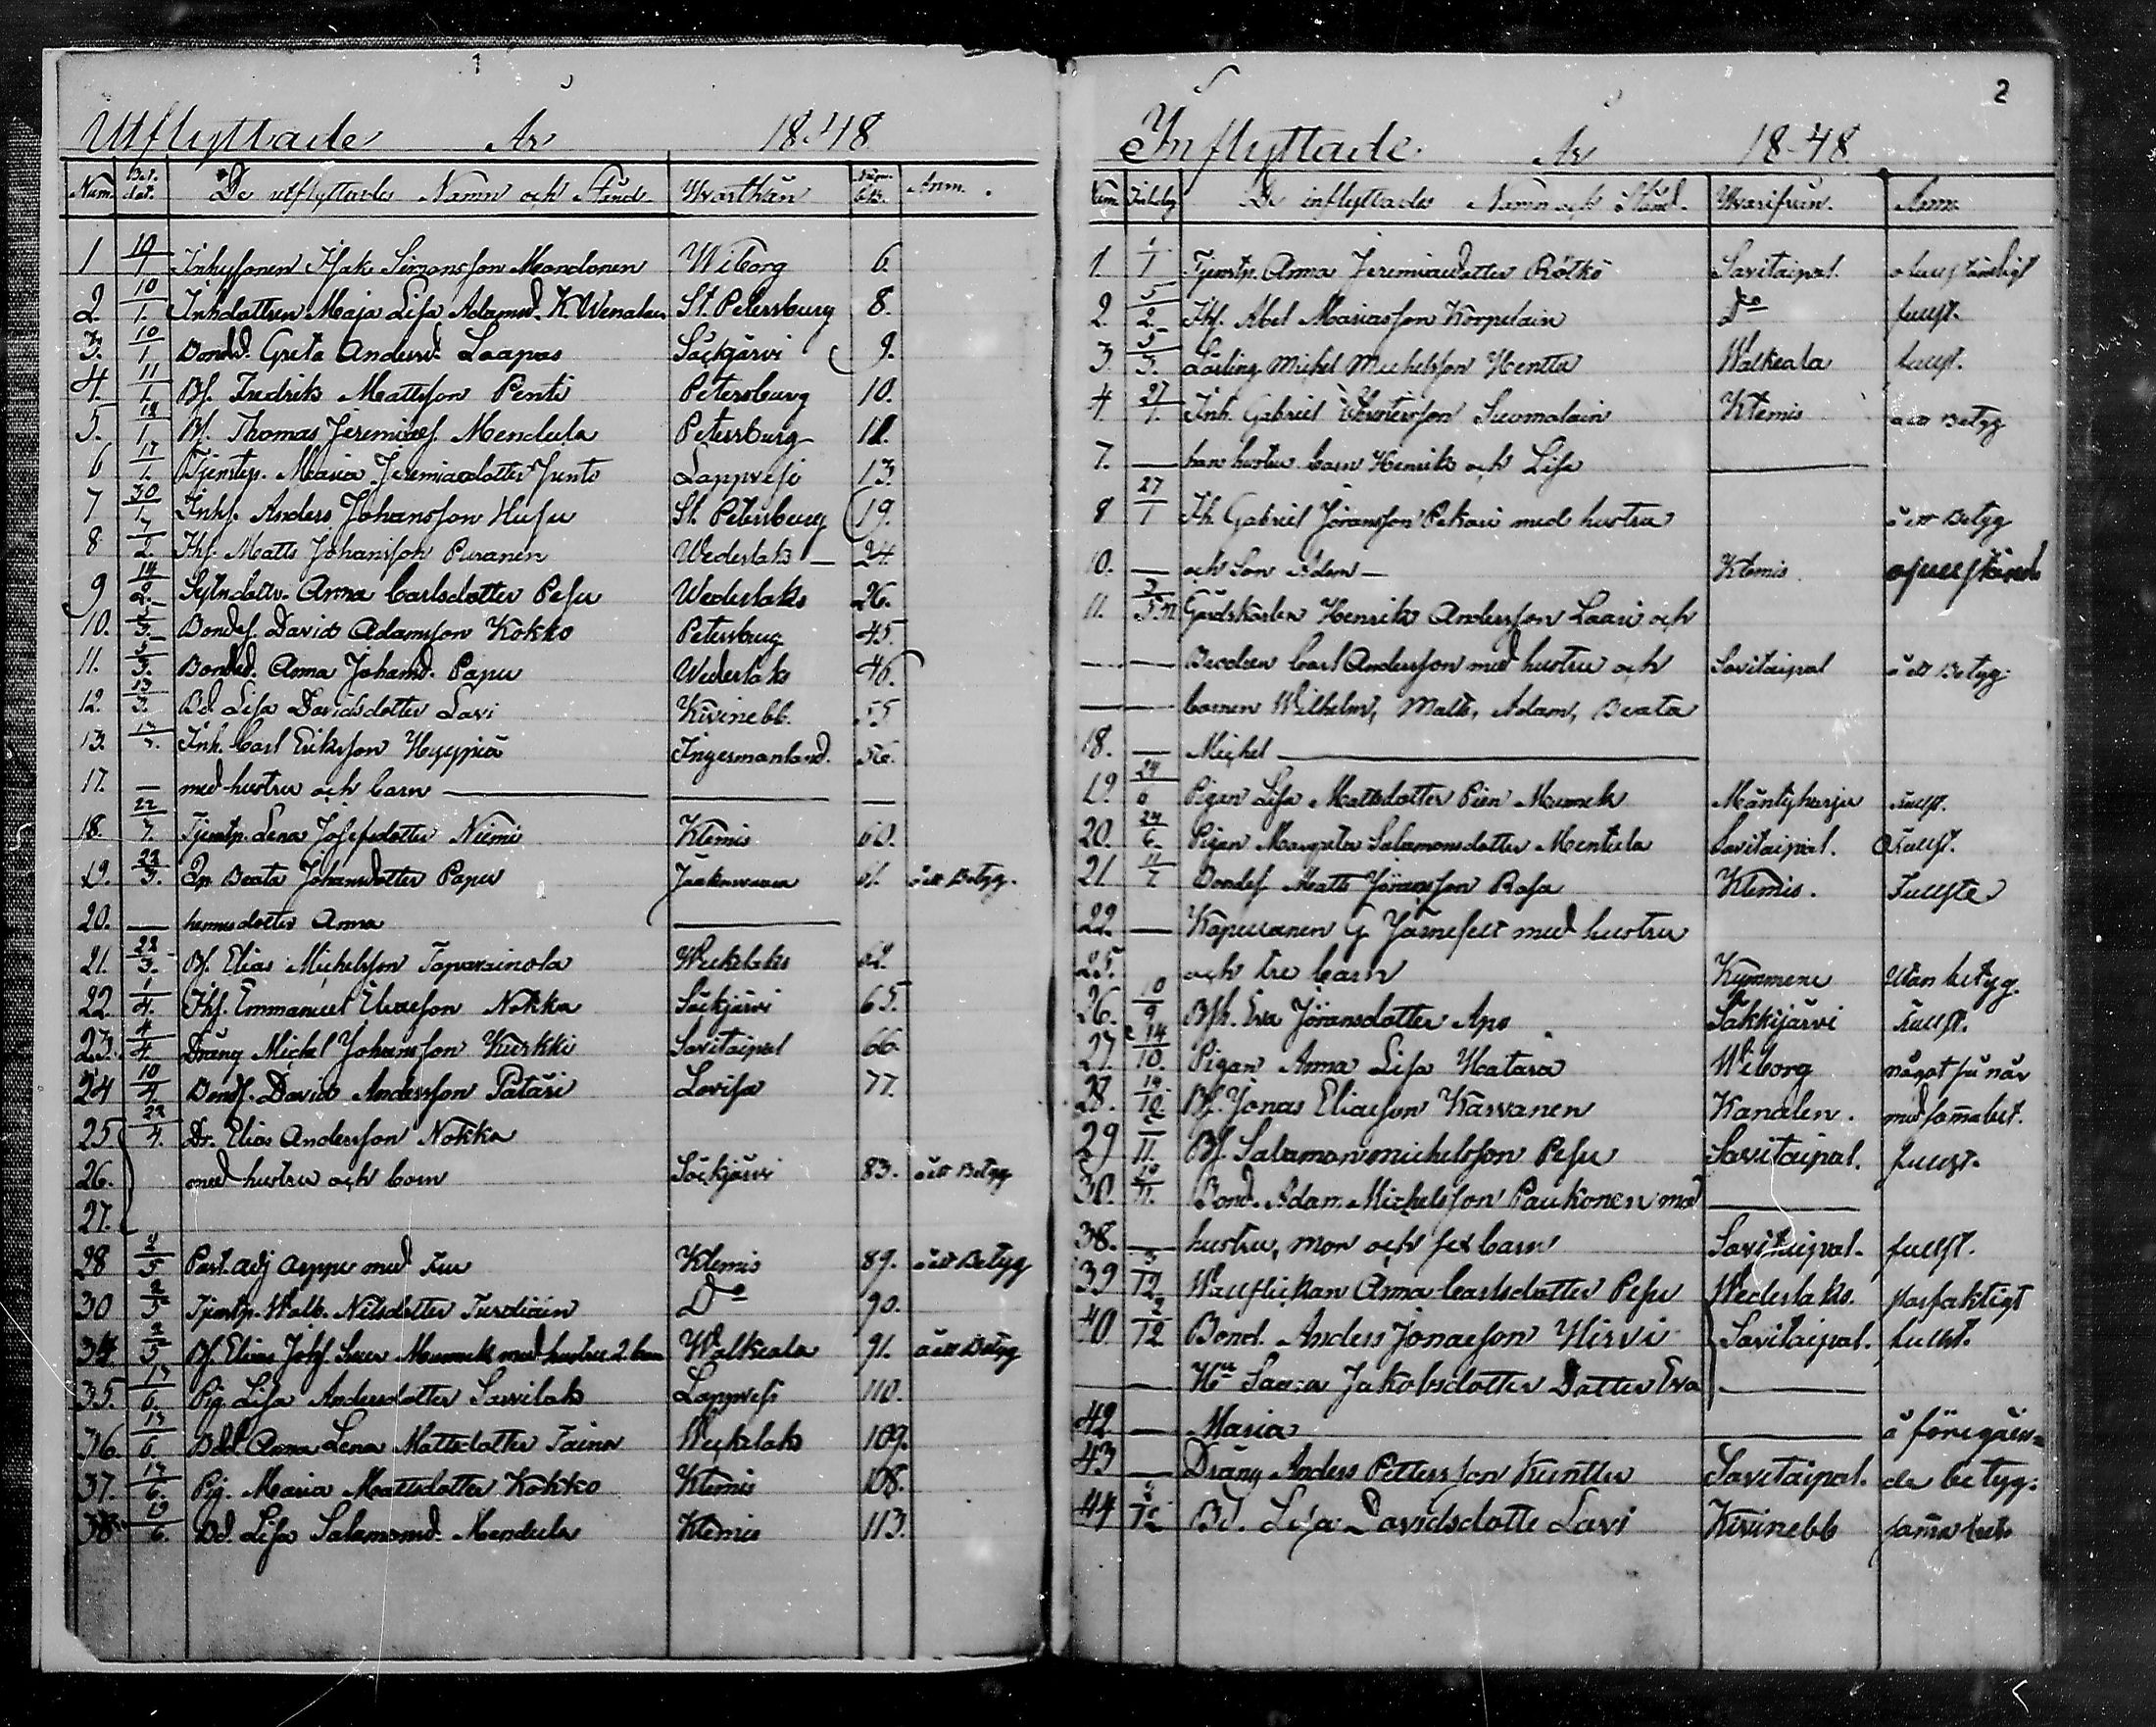 1
Utflyttade År 1848
Num. Bet. dat. De utflyttades Namn och Stånd Hvarthän Anm.
1 10/1 Inhyssonen Isak Simonsson Mondonen Wiborg 6.
2. 10/1. Inhdottren Maja Lisa Adamsd. St. Petersburg 8.
3. 10/1. Bondd. Greta Andersd. Laapas Säckjärvi 9.
4. 11/1. Bs. Fredrik Mattsson Penti Petersburg 10.
5. 12/1. Bs. Thomas Jeremiaes. Mendula Petersburg
6 17/1. Tjenstep. Maria Jeremiaedotter Junto Lappvesi 13.
7 30/1. Inhs. Anders Johansson Husu St. Petersburg 19.
8 7/2. Ihs. Matts Johansson Puranen Wederlaks 24.
9 14/2. Anna Carlsdotter Pesu Wederlaks 26.
10. 5/3. Bondes. David Adamsson Kokko Petersburg 45.
11. 5/3. Bonded. Anna Johansd. Papu Wederlaks 46.
12. 13/3. Bd. Lisa Davidsdotter Lavi Kivinebb. 55
13. Inh. Carl Eriksson Hyyppiä Ingermanland. 56.
17. — med hustru och barn
18. 22/3. Tjenstp. Lena Josefsdotter Niemi Klemis 60.
19. 22/3. Beata Johansdotter Papu 61. å ett Betyg.
20. — hennes dotter Anna
21. 22/3. Bs. Elias Michelsson Tapavainola Weckelaks 62.
22. 1/4. Ihs. Emmanuel Eliaesson Nokka Säckjärvi 65.
23. 4/4. Dräng Michel Johansson Kurkki Savitaipal 66.
24 10/4. Bonds. David Andersson Patäri Lovisa 77.
25. 22/4. Dr. Elias Andersson Nokka
26. med hustru och barn Säckjärvi 83. å ett Betyg
27.
28 2/5 Past. adj Aeppe med Fru Klemis 89. å ett Betyg
30 2/5 Tjenstp. Walb. Nilsdotter Turdiain Do 90.
34 2/5 Bs. Elias Josefs. Suur Muumek med hustru 2. barn Walkeala 91. å ett Betyg
35. 17/6. Pig. Lisa Andersdotter Savilaks Lappvesi 110.
36. 17/6. Bdd. Anna Lena Mattsdotter Taina Weckelaks 109.
37. 17/6. Pig. Maria Mattsdotter Kokko Klemis 108.
38. 19/6. Bd. Lisa Salamonsd. Mendula Klemis 113.
2
Inflyttade År 1848
Num De inflyttades Namn och Stånd. Hvarifrån. Anm.
1. Tjenstp. Anna Jeremiaedotter Rötkö Savitaipal. ofullständigt
2. 5/2. Ihs. Abel Mariasson Korpelain Do fullst.
3. 5/3. Lärling Michel Michelsson Hentta Walkeala fullst.
4 27/1. Inh. Gabriel Christersson Suomalain Klemis å ett Betyg
7. — hans hustru barn Henrik och Lisa
8 27/1 Ih. Gabriel Jöransson Pekari med hustru å ett Betyg
10. — och Son Adam — Klemis ofullständ.
11. Gårdskarlen Henrik Andersson Laari och
— — Brodren Carl Andersson med hustru och Savitaipal å ett Betyg
— — barnen Wilhelm, Matts, Adam, Beata
18. — Michel
19. 24/6 Pigan Lisa Mattsdotter Pien Muumek Mäntyharju fullst.
20. 24/6. Pigan Margreta Salamonsdotter Mentula Savitaipal. Ofullst.
21 11/7 Bondes. Matts Jöransson Rasa Klemis. Fullste
22. — Kapellanen G. Järnefelt med hustru
25. och tre barn Kymmene Utan betyg.
26. 10/9. Bsh. Eva Jöransdotter Apo Säkkijärvi fullst.
27. 14/10. Pigan Anna Lisa Hatara Wiborg något så när
28. 14/10. Bs. Jonas Eliaesson Karvanen Kanalen. med samma bet.
29 Bs. Salamon Michelsson Pesu Savitaipal. fullst.
30. Bond. Adam Michelsson Paukonen med
38. — hustru, mor och sex barn Savitaipal. fullst.
39 3/12. Wallflickan Anna Carlsdotter Pesu Wederlaks.
40. 2/12 Bond. Anders Jonaesson Hirvi Savitaipal. fullst.
— Hu Saara Jakobsdotter Dotter Eva
42 — Maria å föregåen=
43 — Dräng Anders Pettersson Kunttu Savitaipal. de betyg.
44 Bd. Lisa Davidsdotte Lavi Kivinebb samma bet.